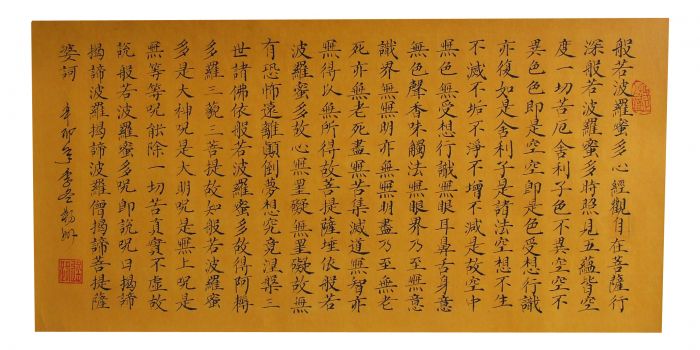 般若波羅蜜多心經觀自在菩薩行
深般若波羅蜜多時照見五蘊皆空
度一切苦厄舍利子色不異空空不
異色色即是空空即是色受想行識
亦復如是舍利子是諸法空想不生
不滅不垢不淨不增不減是故空中
無色無受想行識無眼耳鼻舌身意
無色聲香味觸法無眼界乃至無意
識界無無明亦無無明盡乃至無老
死亦無老死盡無苦集滅道無智亦
無得以無所得故菩提薩埵依般若
波羅蜜多故心無罣礙無罣礙故無
有恐怖遠離顛倒夢想究竟涅槃三
世諸佛依般若波羅蜜多故得阿耨
多羅三藐三菩提故知般若波羅蜜
多是大神呪是大明呪是無上呪是
無等等呪能除一切苦真實不虛故
說般若波羅蜜多呪即說呪曰揭諦
揭諦波羅揭諦波羅僧揭諦菩提薩
婆訶
辛卯年李